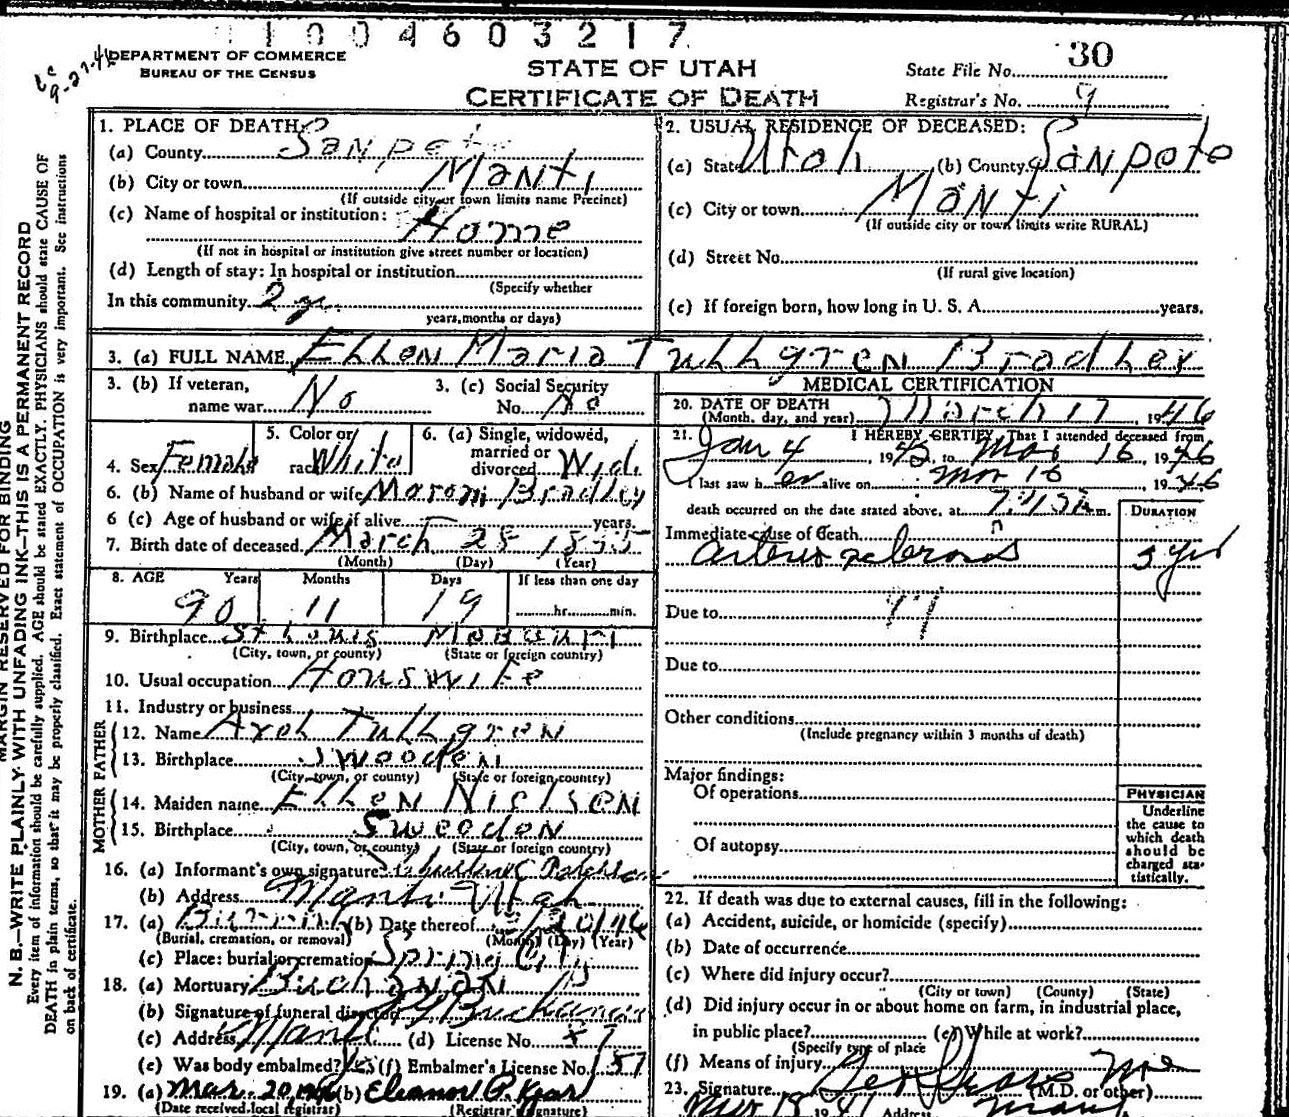 1 1 0 0 4 6 0 3 2 1 7
DEPARTMENT OF COMMERCE
BUREAU OF THE CENSUS
STATE OF UTAH
CERTIFICATE OF DEATH
State File No. 30
Registrar's No. 9
MARGIN RESERVED FOR BINDING
N. B.—WRITE PLAINLY WITH UNFADING INK—THIS IS A PERMANENT RECORD
Every item of information should be carefully supplied. AGE should be stated EXACTLY. PHYSICIANS should state CAUSE OF
DEATH in plain terms, so that it may be properly classified. Exact statement of OCCUPATION is very important. See instructions
on back of certificate.
1. PLACE OF DEATH
(a) County Sanpete
(b) City or town Manti
(If outside city or town limits name Precinct)
(c) Name of hospital or institution:
Home
(If not in hospital or institution give street number or location)
(d) Length of stay: In hospital or institution
(Specify whether
In this community 2 yr.
years, months or days)
2. USUAL RESIDENCE OF DECEASED:
(a) State Utah (b) County Sanpete
(c) City or town Manti
(If outside city or town limits write RURAL)
(d) Street No.
(If rural give location)
(e) If foreign born, how long in U. S. A. years.
3. (a) FULL NAME Ellen Maria Tullgren Bradley
3. (b) If veteran, name war No
3. (c) Social Security No. No
4. Sex Female
5. Color or race White
6. (a) Single, widowed, married or divorced Wid.
6. (b) Name of husband or wife Maroni Bradley
6 (c) Age of husband or wife if alive years.
7. Birth date of deceased March 28 1855
(Month) (Day) (Year)
8. AGE Years Months Days If less than one day
90 11 19 hr. min.
9. Birthplace St Louis Missouri
(City, town, or county) (State or foreign country)
10. Usual occupation Houswife
11. Industry or business
FATHER
12. Name Axel Tullgren
13. Birthplace Sweeden
(City, town, or county) (State or foreign country)
MOTHER
14. Maiden name Ellen Nielsen
15. Birthplace Sweeden
(City, town, or county) (State or foreign country)
16. (a) Informant's own signature
(b) Address Manti Utah
17. (a) Burial (b) Date thereof 3/20/46
(Burial, cremation, or removal) (Month) (Day) (Year)
(c) Place: burial or cremation Spring City
18. (a) Mortuary Buchanan
(b) Signature of funeral director Buchanan
(c) Address Manti (d) License No. 47
(e) Was body embalmed? Yes (f) Embalmer's License No. 157
19. (a) Mar. 20, 1946 (b) Eleanor P. Kjar
(Date received local registrar) (Registrar's signature)
MEDICAL CERTIFICATION
20. DATE OF DEATH
(Month, day, and year) March 17 1946
21. I HEREBY CERTIFY, That I attended deceased from
Jan 4 1942 to Mar 16 1946
I last saw her alive on Mar 16, 1946
death occurred on the date stated above, at m.
DURATION
Immediate cause of death
arterio sclerosis 3 yrs
Due to
Due to
Other conditions
(Include pregnancy within 3 months of death)
Major findings:
Of operations
Of autopsy
PHYSICIAN
Underline
the cause to
which death
should be
charged sta-
tistically.
22. If death was due to external causes, fill in the following:
(a) Accident, suicide, or homicide (specify)
(b) Date of occurrence
(c) Where did injury occur?
(City or town) (County) (State)
(d) Did injury occur in or about home on farm, in industrial place,
in public place? (e) While at work?
(Specify type of place
(f) Means of injury
23. Signature (M.D. or other)
Address Manti